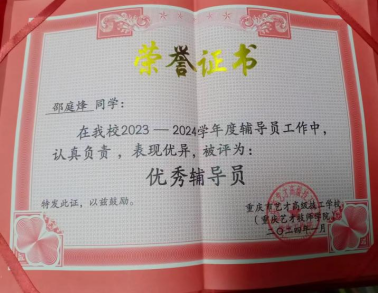 荣誉证书
邵庭烽 同学：
在我校2023—2024学年度辅导员工作中，
认真负责，表现优异，被评为：
优秀辅导员
特发此证，以兹鼓励。
重庆市艺才高级技工学校
（重庆艺才技师学院）
二〇二四年一月